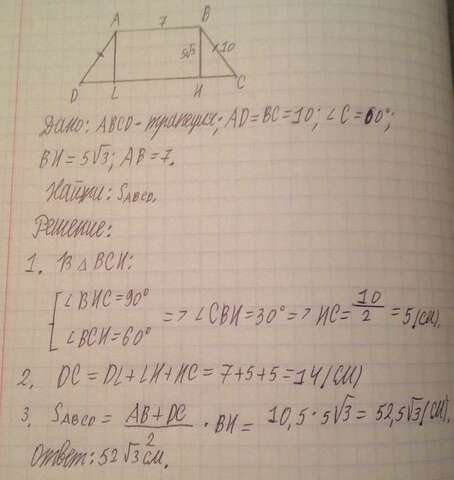 A 7 B
5√3 10
D L H C
Дано: ABCD - трапеция; AD=BC=10; ∠C=60°;
BH=5√3; AB=7.
Найти: S_ABCD.
Решение:
1. В △ BCH:
∠BHC=90°
∠BCH=60°
=> ∠CBH=30° => HC= 10/2 =5(см).
2. DC=DL+LH+HC=7+5+5=14(см)
3. S_ABCD = (AB+DC)/2 · BH= 10,5·5√3=52,5√3(см).
Ответ: 52√3см.